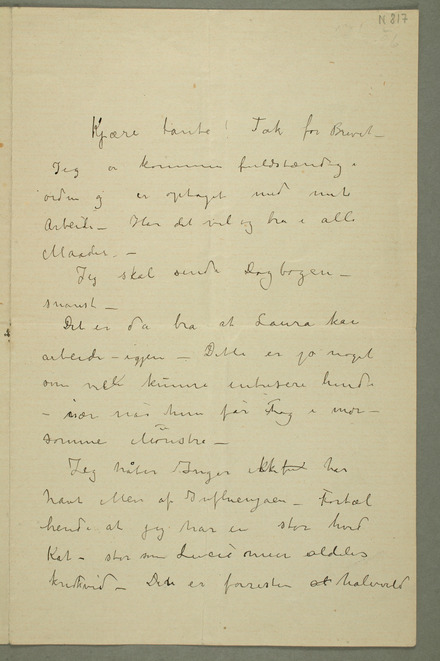 N 817
Kjære tante! Tak for Brevet –
Jeg er kommen fuldstændig i
orden og er optaget med mit
Arbeide – Har det vel og bra i alle
Maader. –
Jeg skal sende Dagbogen –
snarest –
Det er da bra at Laura kan
arbeide – igjen – Dette er jo noget
som vil kunne intresere hende
– især når hun får Fag i mor-
somme Mönstre –
Jeg håber Inger ikke har
havt Men af Influenzaen – Fortæl
hende at jeg har en stor hvid
Kat – stor som Lucie men aldeles
kridhvid – Den er forresten halvvild